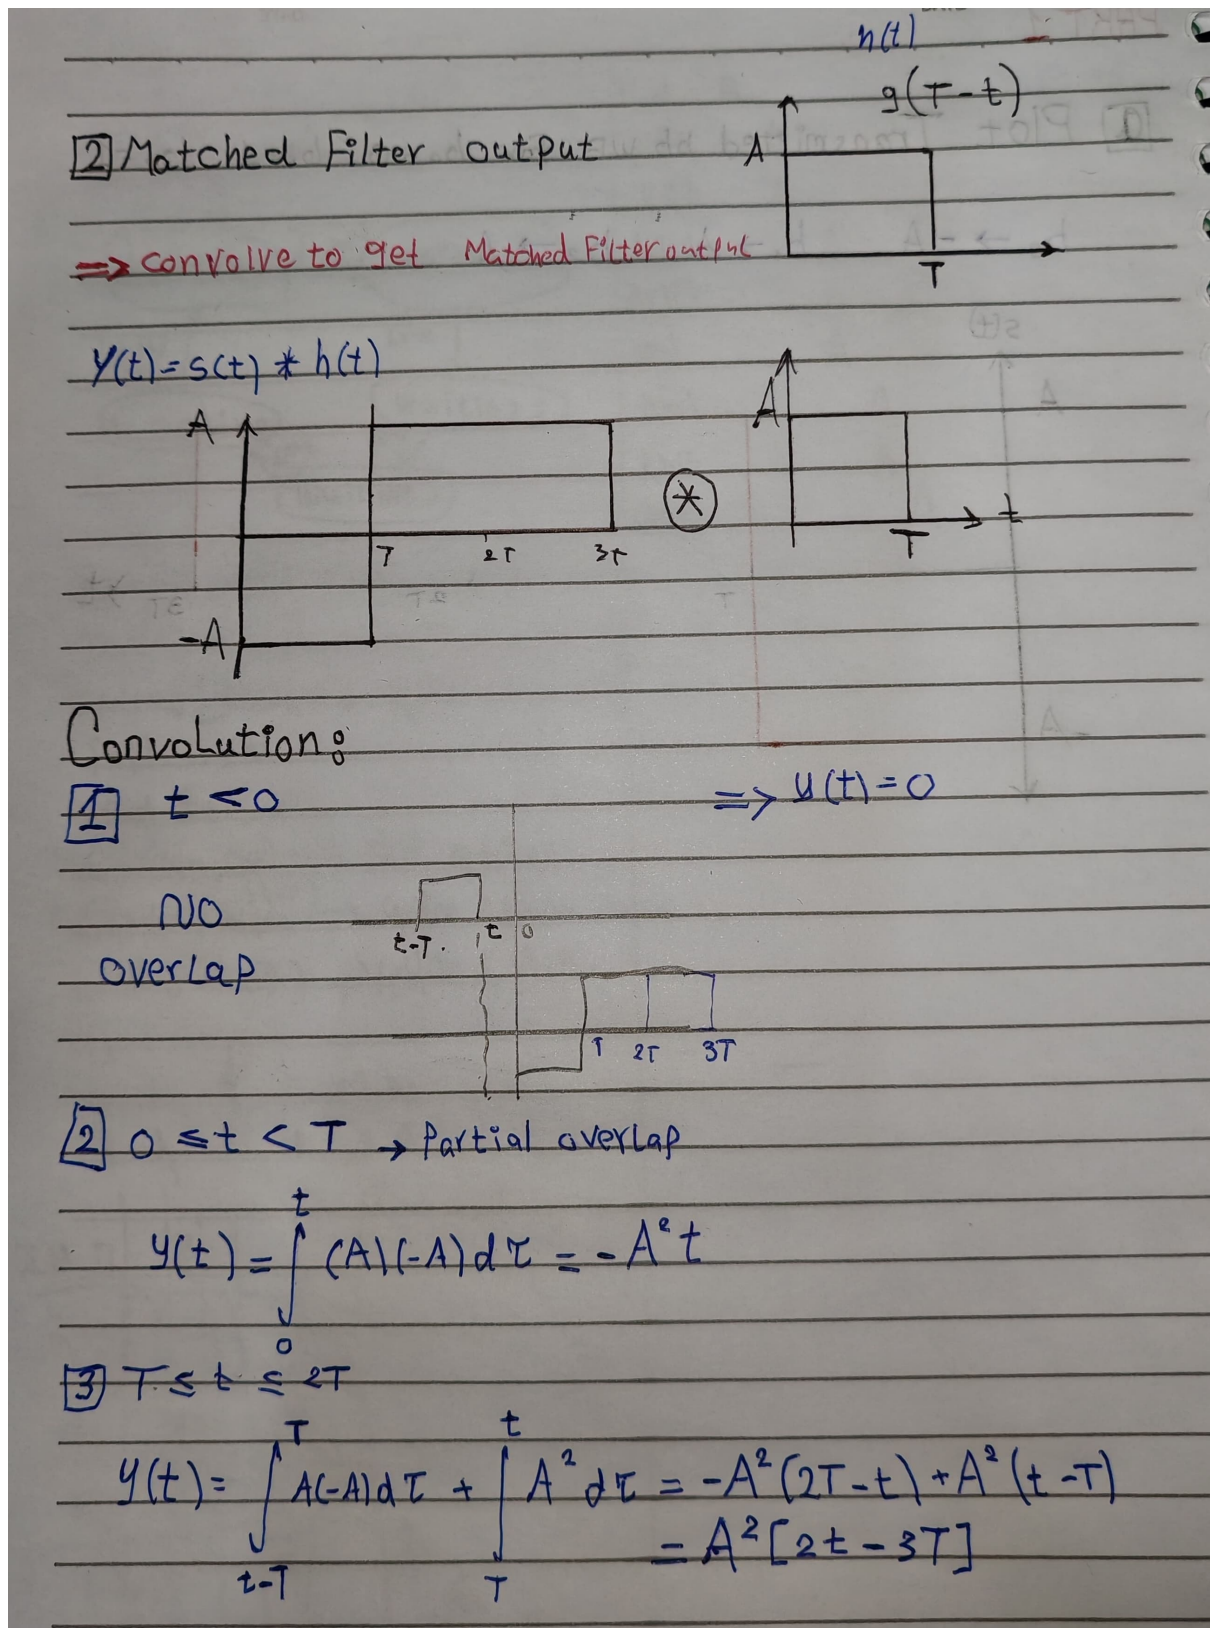 h(t)
g(T-t)
[2] Matched Filter output
A
⇒ convolve to get Matched Filter output
T
y(t) = s(t) * h(t)
A
A
*
t
T
2T
3T
T
-A
Convolution:
[1] t < 0 ⇒ y(t) = 0
NO
overlap
t-T
t
0
T
2T
3T
[2] 0 ≤ t < T → Partial overlap
y(t) = ∫₀ᵗ (A)(-A) dτ = -A² t
[3] T ≤ t ≤ 2T
y(t) = ∫_{t-T}^{T} A(-A) dτ + ∫_{T}^{t} A² dτ = -A² (2T-t) + A² (t-T)
= A² [2t - 3T]